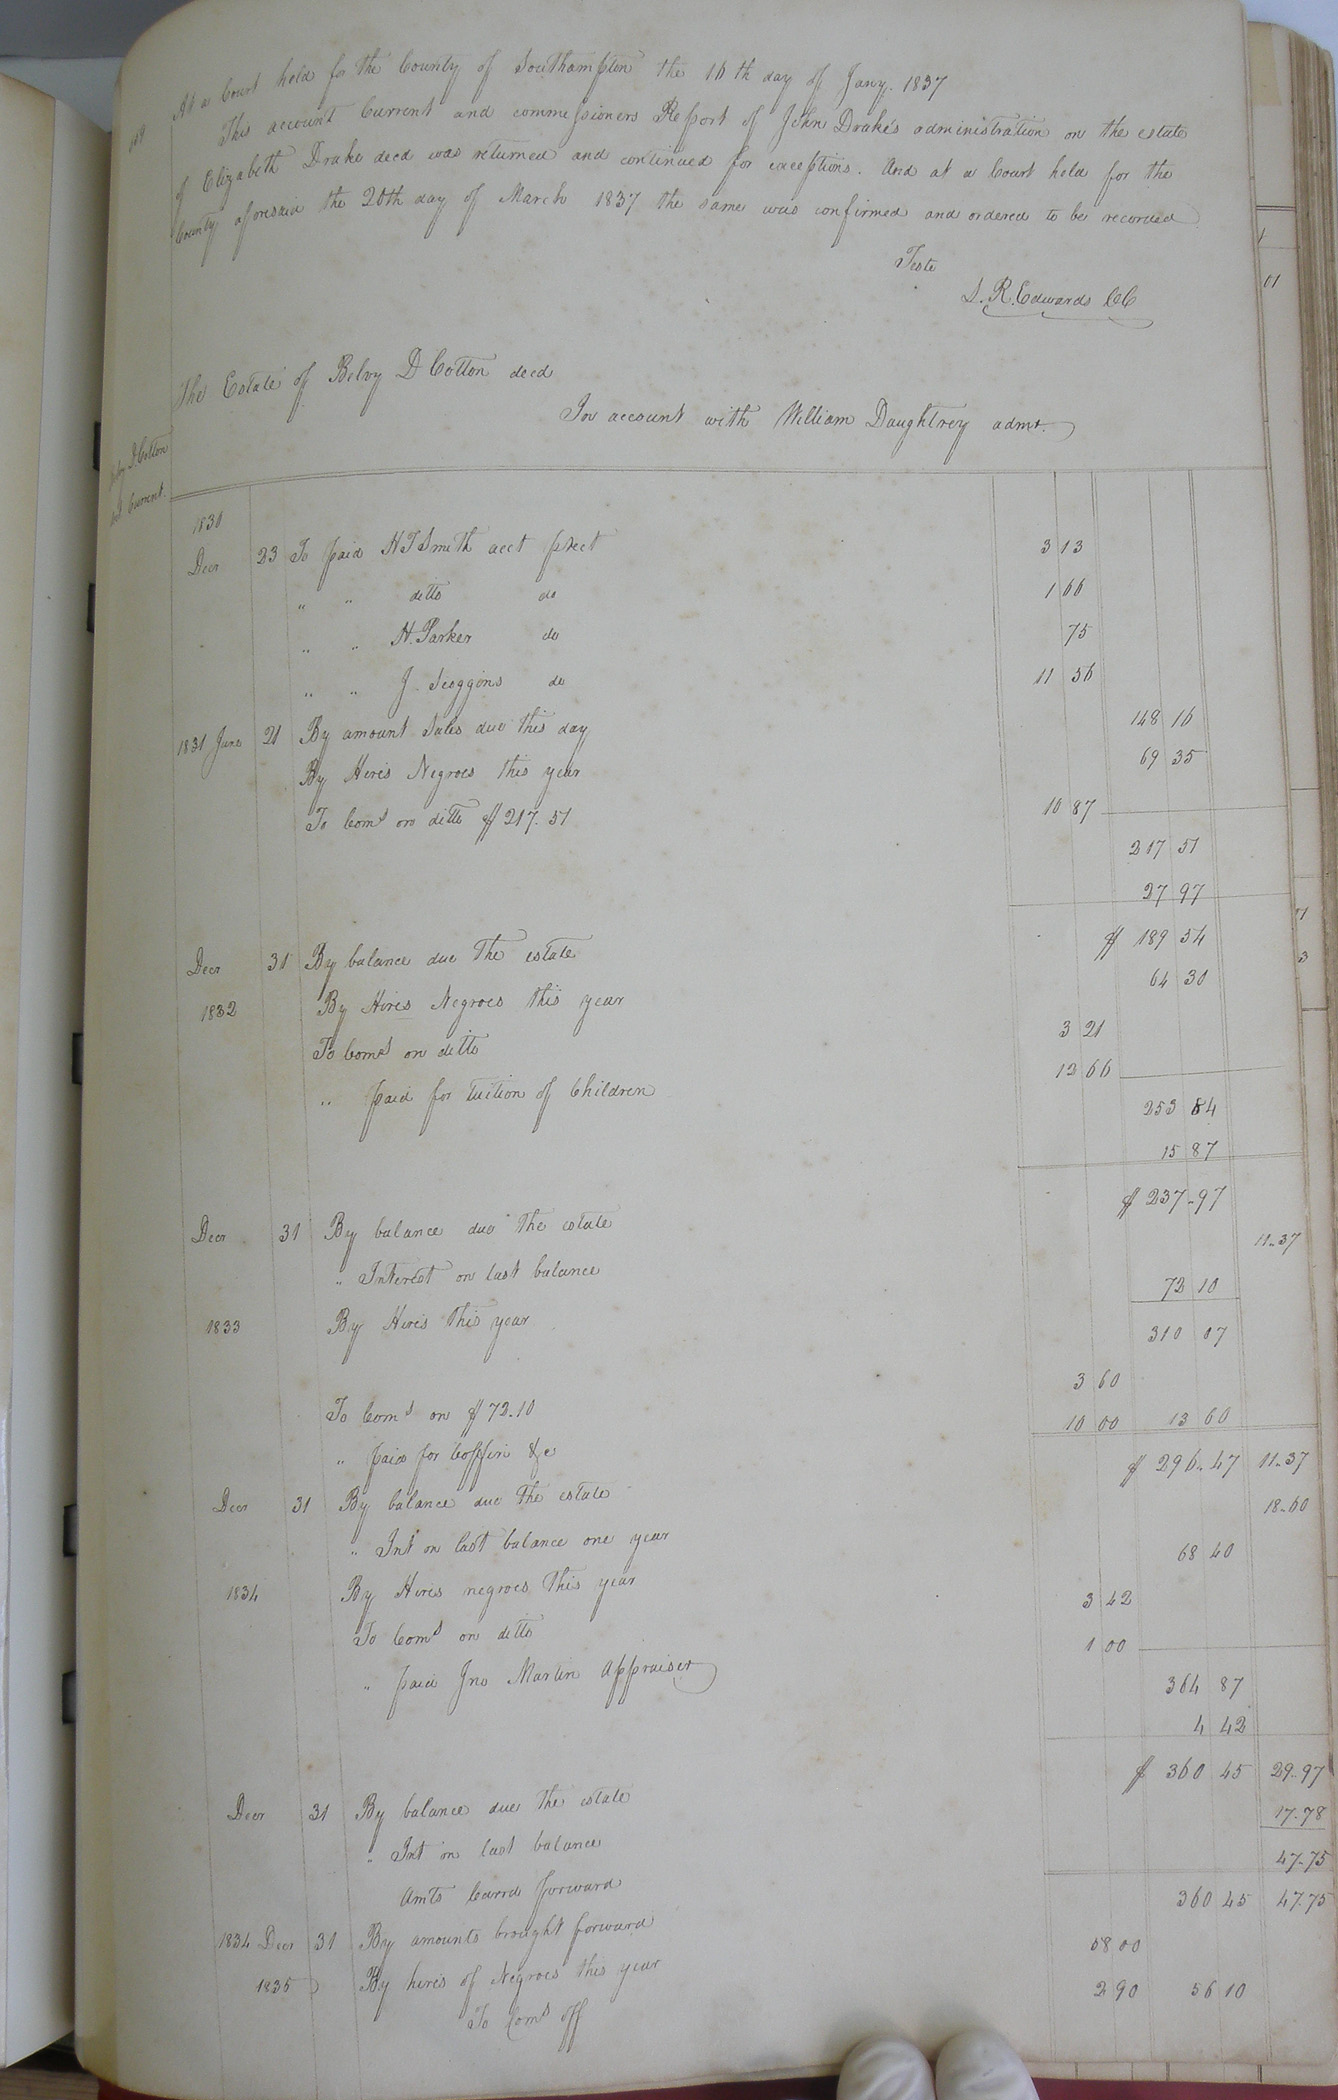 At a Court held for the County of Southampton the 16th day of Jany. 1837
This account Current and commissioners Report of John Drake's administration on the estate
of Elizabeth Drake decd was returned and continued for exceptions. And at a Court held for the
County aforesaid the 20th day of March 1837 the same was confirmed and ordered to be recorded
Teste
L. R. Edwards CC
The Estate of Belvy D Cotton decd
In account with William Daughtrey admr.
D Cotton
Current.
1830
Decr 23 To paid H T Smith acct prect 3 13
" " ditto do 1 66
" " H. Parker do 75
" " J. Scoggins do 11 56
1831 June 21 By amount Sales due this day 148 16
By Hires Negroes this year 69 35
To Coms on ditto $ 217.51 10 87
217 51
27 97
Decr 31 By balance due the estate $ 189 54
1832 By Hires Negroes this year 64 30
To Coms on ditto 3 21
" paid for tuition of Children 12 66
253 84
15 87
Decr 31 By balance due the estate $ 237-97
" Interest on last balance 11-37
1833 By Hires this year 72 10
310 07
To Coms on $ 72.10 3 60
" paid for Coffin &c 10 00 13 60
Decr 31 By balance due the estate $ 296-47 11-37
" Int on last balance one year 18-60
1834 By Hires negroes this year 68 40
To Coms on ditto 3 42
" paid Jno Martin Appraiser 1 00
364 87
4 42
Decr 31 By balance due the estate $ 360 45 29-97
" Int on last balance 17-78
47-75
Amts Carrd forward 360 45 47-75
1834 Decr 31 By amounts brought forward
1835 By hires of Negroes this year 58 00
To Coms off 2 90 56 10